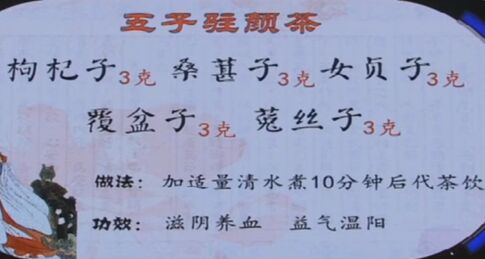 五子驻颜茶
枸杞子3克 桑葚子3克 女贞子3克
覆盆子3克 菟丝子3克
做法：加适量清水煮10分钟后代茶饮
功效：滋阴养血 益气温阳